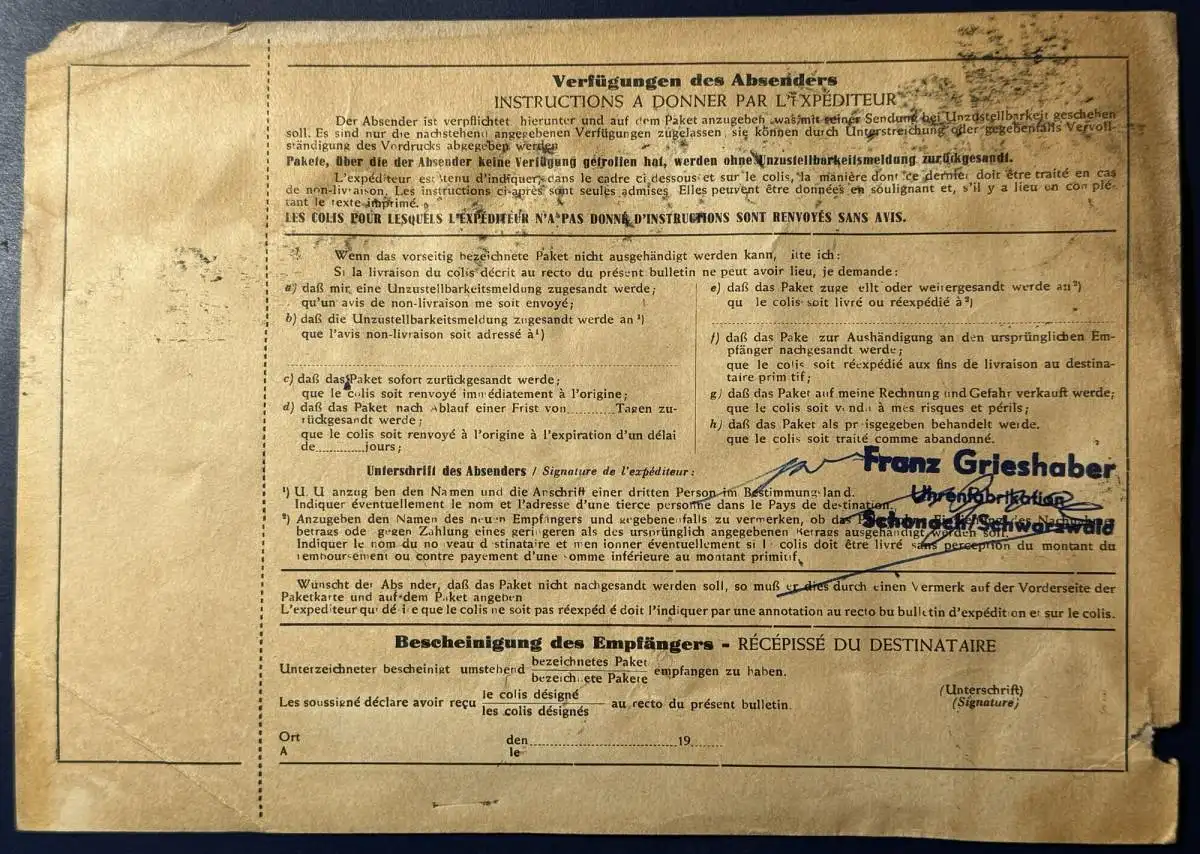 Verfügungen des Absenders
INSTRUCTIONS A DONNER PAR L'EXPÉDITEUR
Der Absender ist verpflichtet hierunter und auf dem Paket anzugeben, was mit seiner Sendung bei Unzustellbarkeit geschehen
soll. Es sind nur die nachstehend angegebenen Verfügungen zugelassen, sie können durch Unterstreichung oder gegebenfalls Vervoll-
ständigung des Vordrucks abgegeben werden
Pakete, über die der Absender keine Verfügung getroffen hat, werden ohne Unzustellbarkeitsmeldung zurückgesandt.
L'expéditeur est tenu d'indiquer, dans le cadre ci dessous et sur le colis, la manière dont ce dernier doit être traité en cas
de non-livraison. Les instructions ci-après sont seules admises. Elles peuvent être données en soulignant et, s'il y a lieu en complé-
tant le texte imprimé.
LES COLIS POUR LESQUELS L'EXPÉDITEUR N'A PAS DONNÉ D'INSTRUCTIONS SONT RENVOYÉS SANS AVIS.
Wenn das vorseitig bezeichnete Paket nicht ausgehändigt werden kann, itte ich:
Si la livraison du colis décrit au recto du présent bulletin ne peut avoir lieu, je demande:
a) daß mir eine Unzustellbarkeitsmeldung zugesandt werde;
qu'un avis de non-livraison me soit envoyé;
b) daß die Unzustellbarkeitsmeldung zugesandt werde an ¹)
que l'avis non-livraison soit adressé à ¹)
c) daß das Paket sofort zurückgesandt werde;
que le colis soit renvoyé immédiatement à l'origine;
d) daß das Paket nach Ablauf einer Frist von Tagen zu-
rückgesandt werde;
que le colis soit renvoyé à l'origine à l'expiration d'un délai
de jours;
e) daß das Paket zuge ellt oder weitergesandt werde an ²)
qu le colis soit livré ou réexpédié à ²)
f) daß das Pake zur Aushändigung an den ursprünglichen Em-
pfänger nachgesandt werde;
que le colis soit réexpédié aux fins de livraison au destina-
taire primitif;
g) daß das Paket auf meine Rechnung und Gefahr verkauft werde;
que le colis soit vendu à mes risques et périls;
h) daß das Paket als preisgegeben behandelt werde.
que le colis soit traité comme abandonné.
Unterschrift des Absenders / Signature de l'expéditeur:
Franz Grieshaber
Uhrenfabrikation
Schonach/Schwarzwald
¹) U. U anzug ben den Namen und die Anschrift einer dritten Person im Bestimmungsland.
Indiquer éventuellement le nom et l'adresse d'une tierce personne dans le Pays de destination.
²) Anzugeben den Namen des neuen Empfängers und gegebenenfalls zu vermerken, ob das
betrags oder gegen Zahlung eines geringeren als des ursprünglich angegebenen Betrags ausgehändigt werden soll.
Indiquer le nom du nouveau destinataire et mentionner éventuellement si le colis doit être livré sans perception du montant du
remboursement ou contre payement d'une somme inférieure au montant primitif.
Wünscht der Abs nder, daß das Paket nicht nachgesandt werden soll, so muß er dies durch einen Vermerk auf der Vorderseite der
Paketkarte und auf dem Paket angeben
L'expediteur qui désire que le colis ne soit pas réexpédié doit l'indiquer par une annotation au recto bu bulletin d'expédition et sur le colis.
Bescheinigung des Empfängers - RÉCÉPISSÉ DU DESTINATAIRE
Unterzeichneter bescheinigt umstehend bezeichnetes Paket empfangen zu haben.
bezeichnete Pakete
Les soussigné déclare avoir reçu le colis désigné au recto du présent bulletin.
les colis désignés
(Unterschrift)
(Signature)
Ort den 19
A le